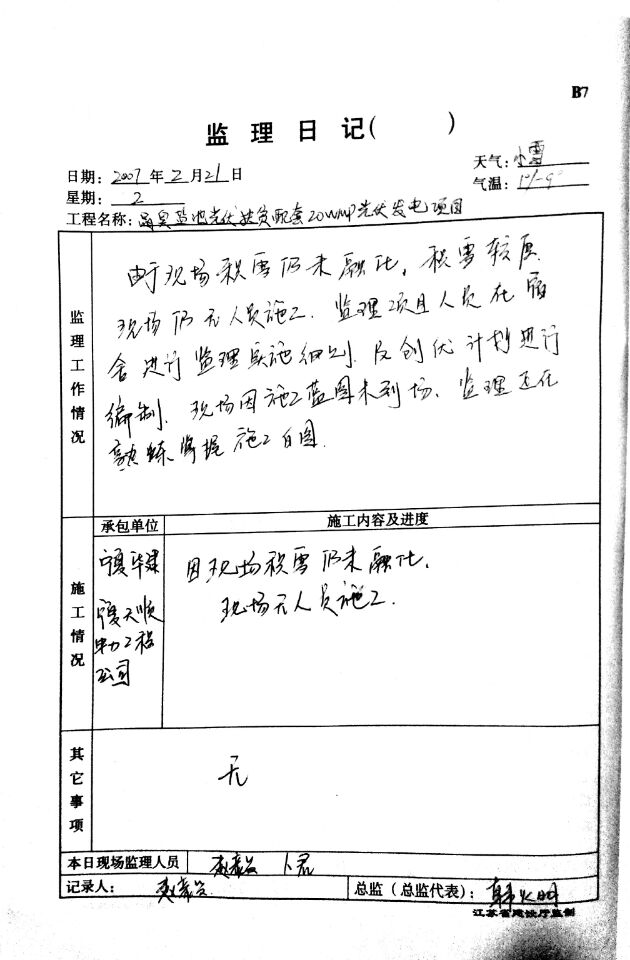 B7
监理日记( )
天气: 小雪
日期: 2007年2月21日
气温: 1°/-9°
星期: 2
工程名称: 盐池光伏扶贫配套20WMP光伏发电项目
监理工作情况
由于现场积雪仍未融化,积雪较厚
现场仍无人员施工.监理项目人员在宿
舍进行监理实施细则及创优计划进行
编制.现场因施工蓝图未到场.监理正在
熟练掌握施工白图.
施工情况
承包单位
施工内容及进度
宁夏华建
宁夏天顺
电力工程
公司
因现场积雪仍未融化,
现场无人员施工.
其它事项
无
本日现场监理人员
卜君
记录人:
总监(总监代表):
江苏省建设厅监制